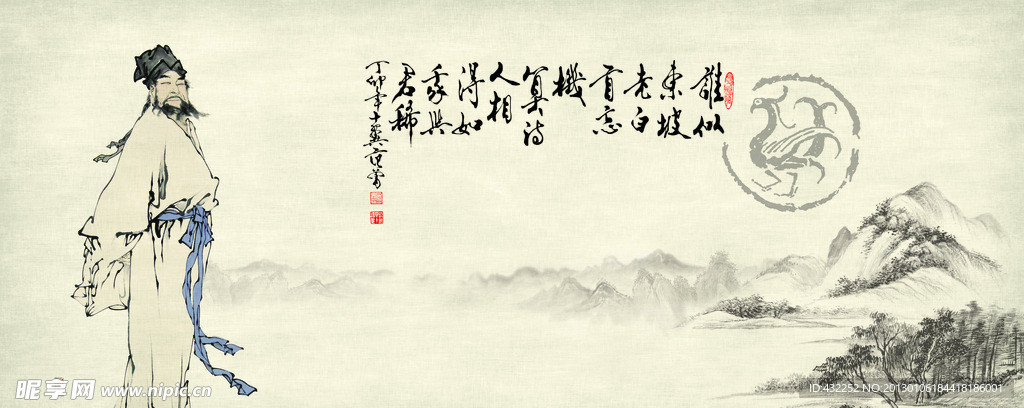 誰似
東坡
老白
首忘
機
算詩
人相
得如
我與
君稀
丁卯年十翼范曾
昵享网 www.nipic.cn
ID:432252 NO.20130106184418186001